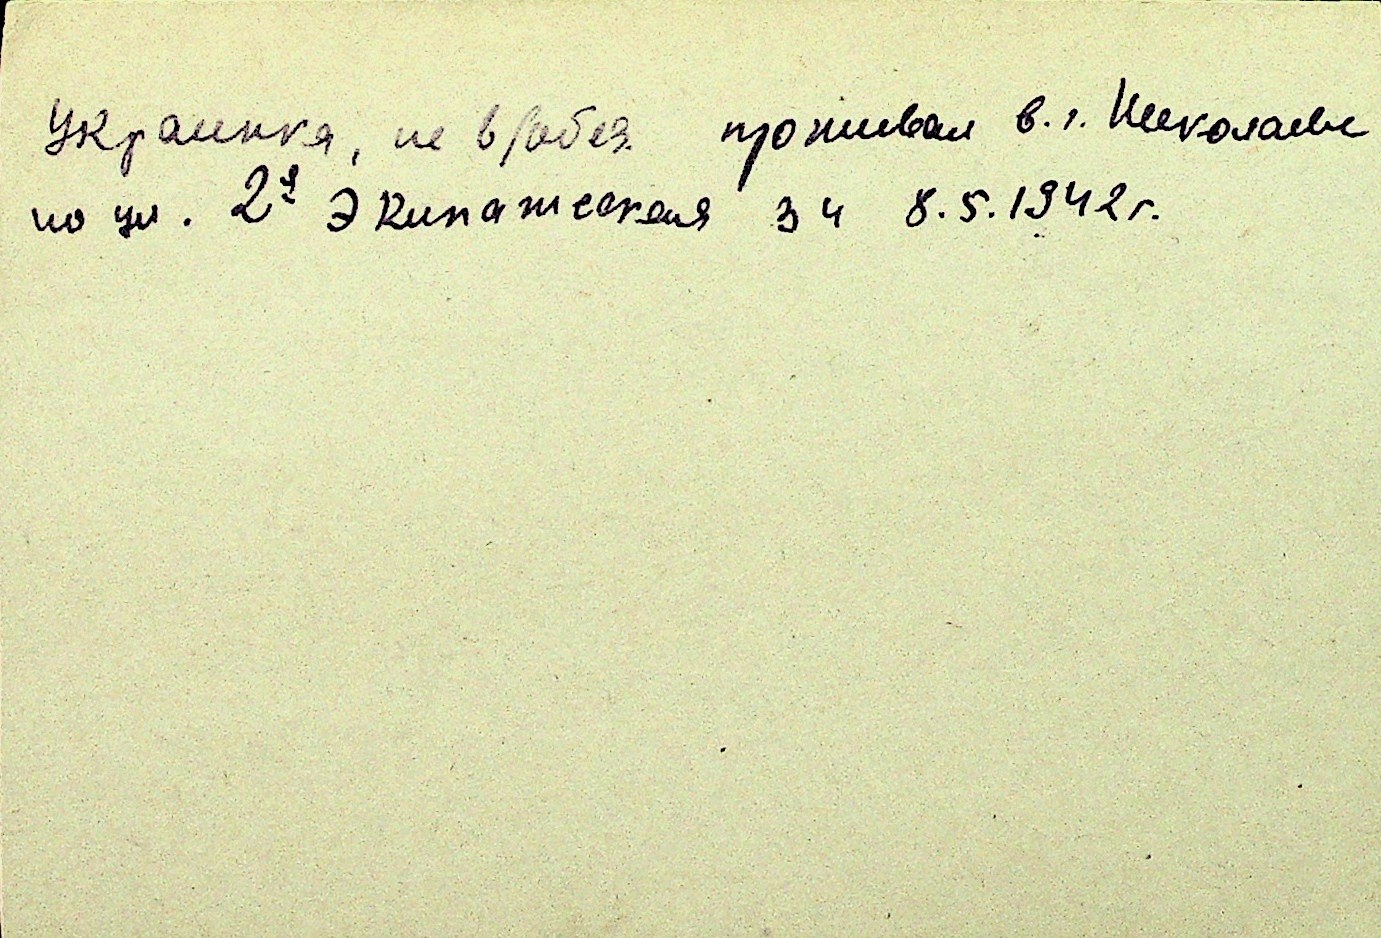 Украинка, не в/обяз. проживал в. г. Николаеве
по ул. 2я Экипажеская 34 8.5.1942 г.